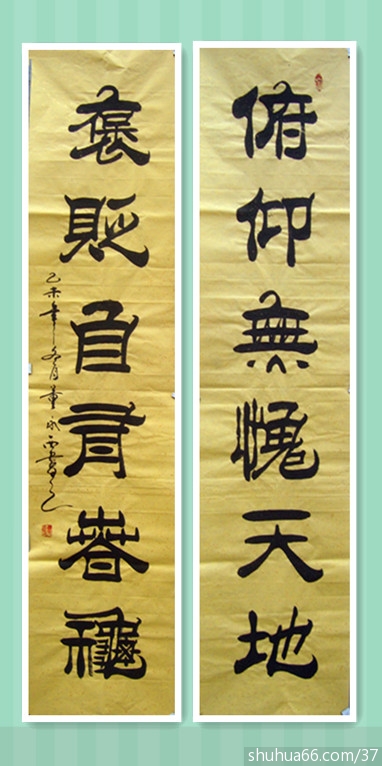 俯仰無愧天地
褒貶自有春龝
未年冬月董
shuhua66.com/37